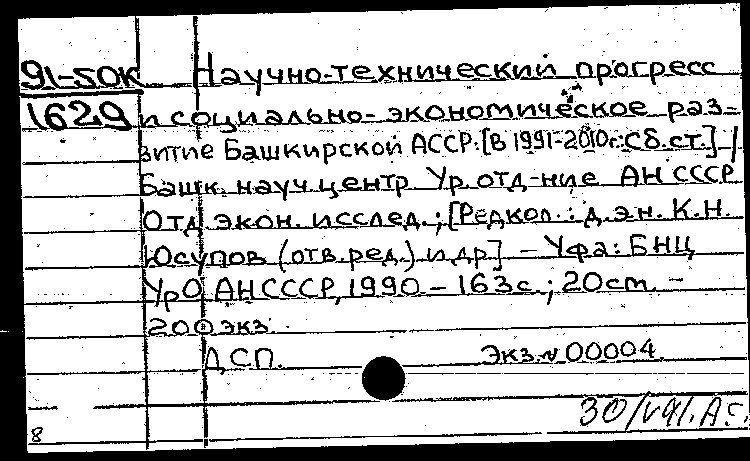 91-50К Научно-технический прогресс
1629 и социально-экономическое раз-
витие Башкирской АССР: [В 1991-2010г.: Сб. ст.] /
Башк. науч. центр Ур. отд-ние АН СССР
Отд. экон. исслед.; [Редкол.: д.эн. К.Н.
Юсупов (отв. ред.) и др] – Уфа: БНЦ
УрО АН СССР, 1990 – 163с.; 20см –
200 экз
ДСП. Экз. № 00004
8